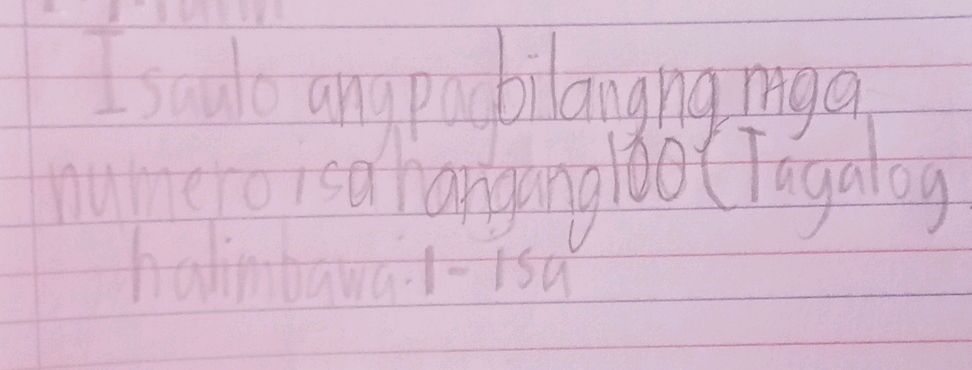 Isaulo ang pagbilang ng mga
numero isa hangang 100 (Tagalog
halimbawa: 1 - isa